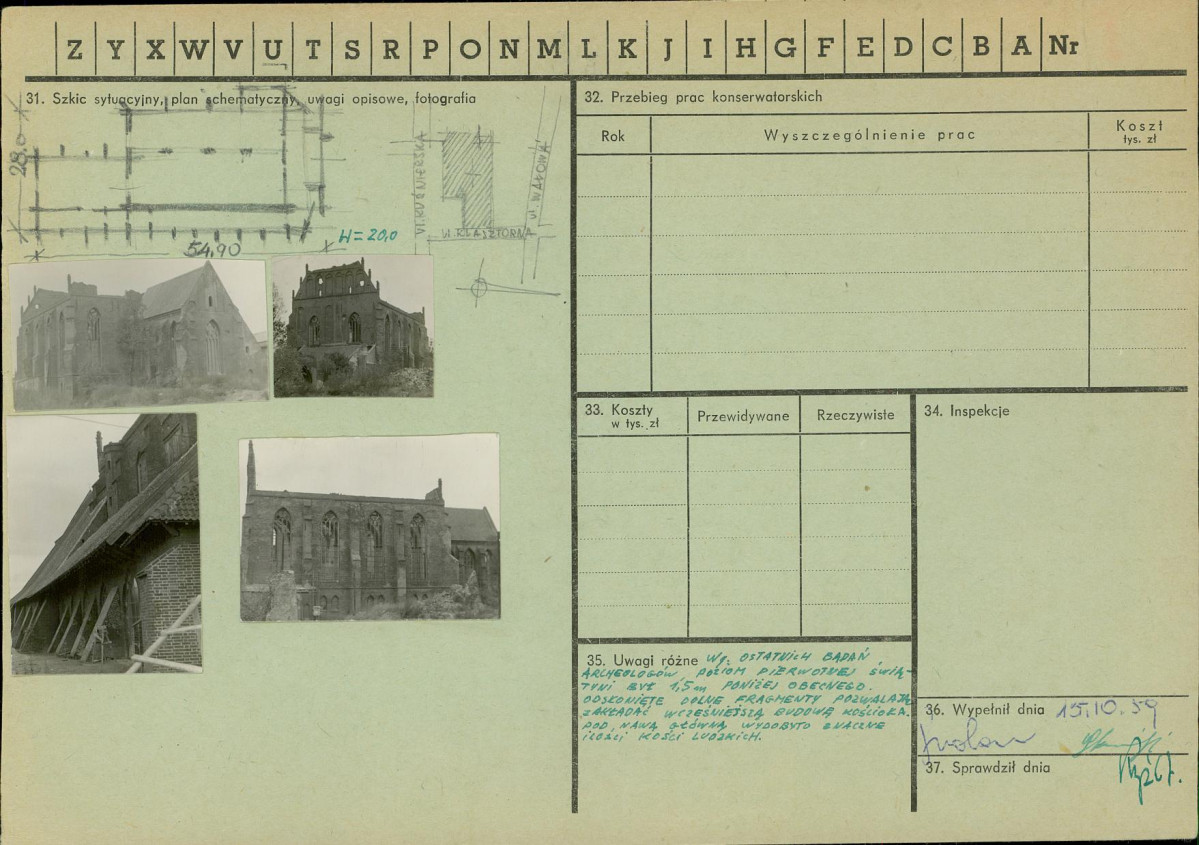 Z Y X W V U T S R P O N M L K J I H G F E D C B A Nr
31. Szkic sytuacyjny, plan schematyczny, uwagi opisowe, fotografia
28.0
54,90
H=20,0
UL KUŚNIERSKA
UL. WAŁOWA
Ul KLASZTORNA
32. Przebieg prac konserwatorskich
Rok
Wyszczególnienie prac
Koszt
tys. zł
33. Koszty
w tys. zł
Przewidywane
Rzeczywiste
34. Inspekcje
35. Uwagi różne Wg. OSTATNICH BADAŃ
ARCHEOLOGÓW, POZIOM PIERWOTNEJ ŚWIĄ-
TYNI BYŁ 1,5m PONIŻEJ OBECNEGO.
ODSŁONIĘTE DOLNE FRAGMENTY POZWALAJĄ
ZAKŁADAĆ WCZEŚNIEJSZĄ BUDOWĘ KOŚCIOŁA.
POD NAWĄ GŁÓWNĄ WYDOBYTO ZNACZNE
ILOŚCI KOŚCI LUDZKICH.
36. Wypełnił dnia 15.10.59
37. Sprawdził dnia